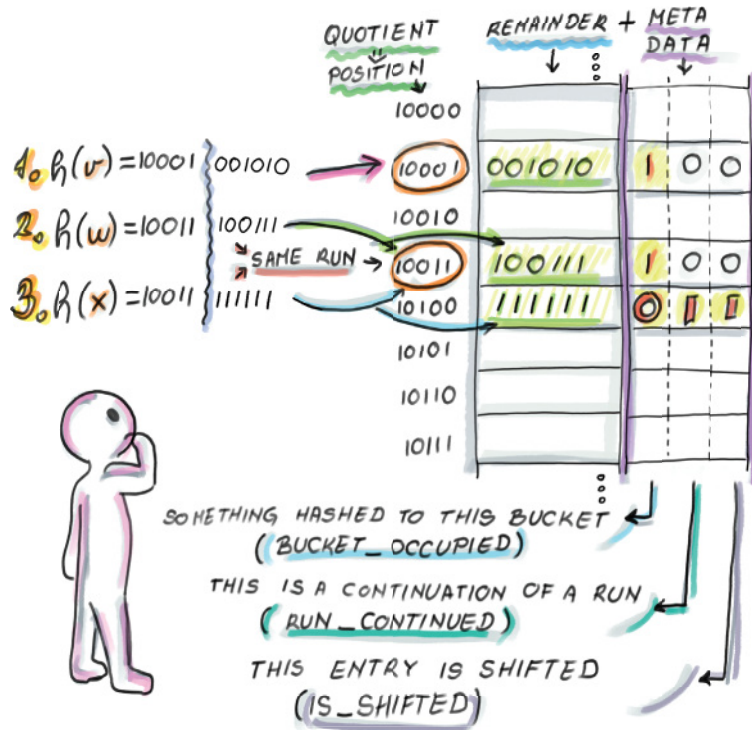 QUOTIENT
POSITION
REMAINDER + META
DATA
10000
1. h(v) = 10001 001010 10001 001010 1 0 0
10010
2. h(w) = 10011 100111
SAME RUN 10011 100111 1 0 0
3. h(x) = 10011 111111 10100 111111 0 1 1
10101
10110
10111
SOMETHING HASHED TO THIS BUCKET
(BUCKET_OCCUPIED)
THIS IS A CONTINUATION OF A RUN
(RUN_CONTINUED)
THIS ENTRY IS SHIFTED
(IS_SHIFTED)